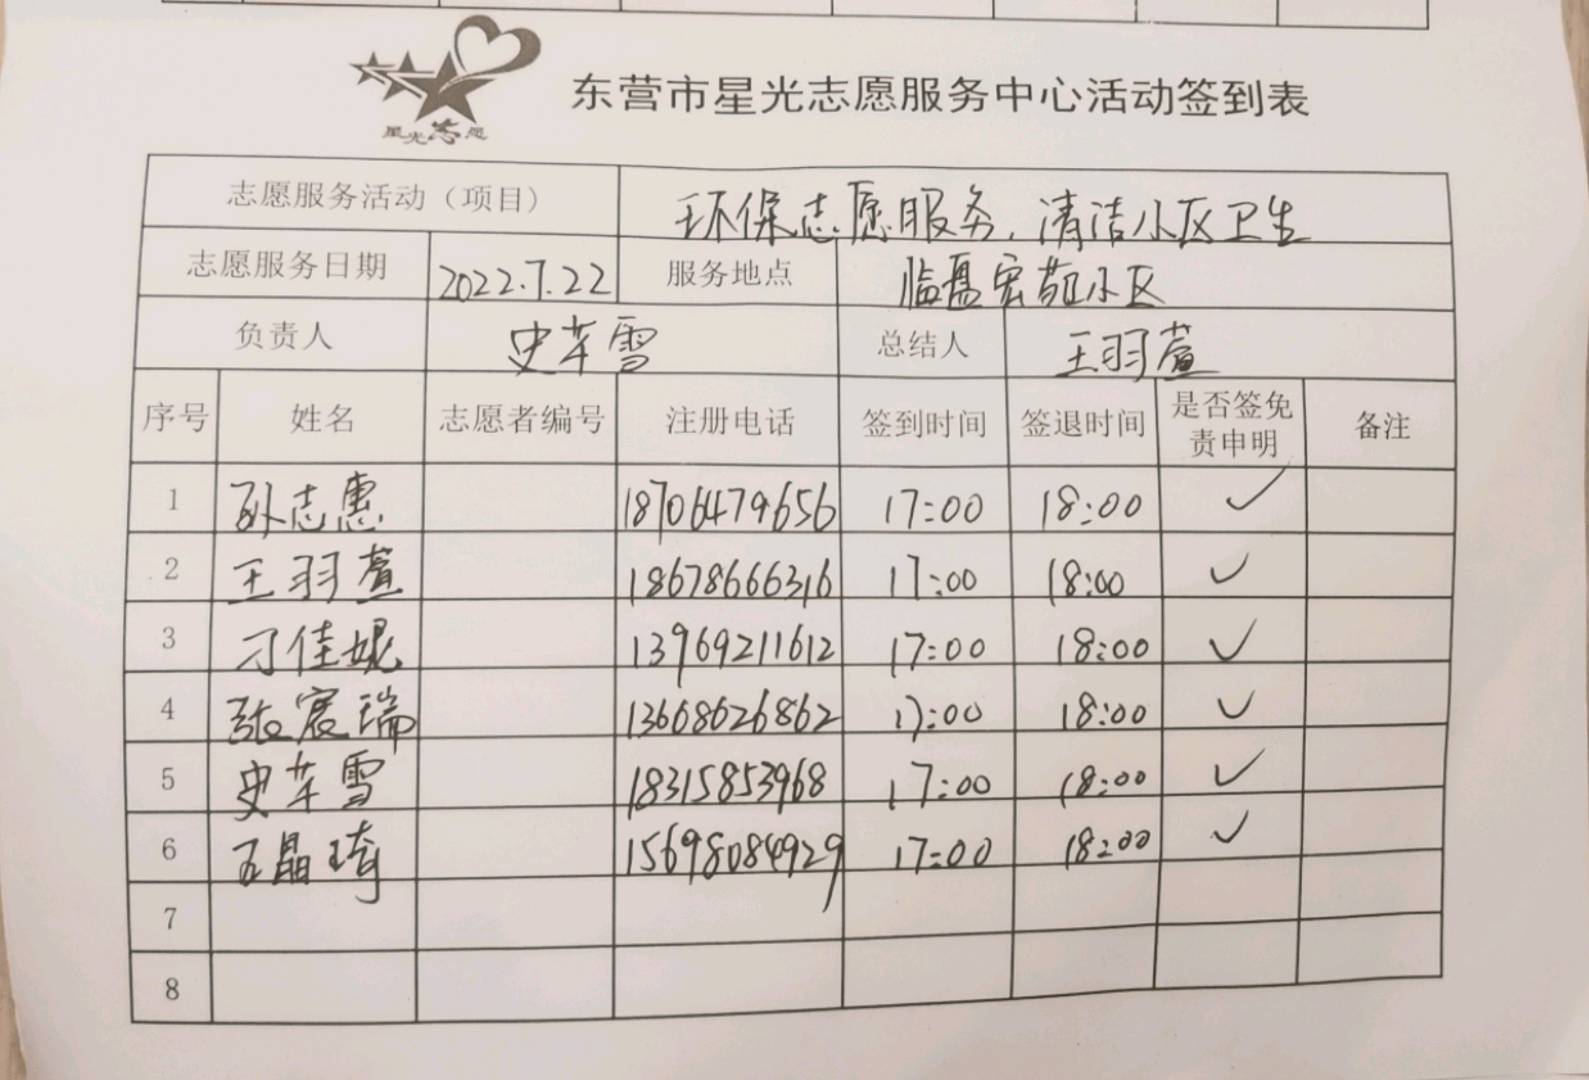 星光志愿
东营市星光志愿服务中心活动签到表
志愿服务活动（项目） 环保志愿服务，清洁小区卫生
志愿服务日期 2022.7.22 服务地点 临盘宏苑小区
负责人 史芊雪 总结人 王羽萱
序号 姓名 志愿者编号 注册电话 签到时间 签退时间 是否签免责申明 备注
1 孙志惠 18706479656 17:00 18:00 ✓
2 王羽萱 18678666316 17:00 18:00 ✓
3 刁佳妮 13969211612 17:00 18:00 ✓
4 张宸瑞 13668626862 17:00 18:00 ✓
5 史芊雪 18315853968 17:00 18:00 ✓
6 王晶琦 15698084929 17:00 18:00 ✓
7
8